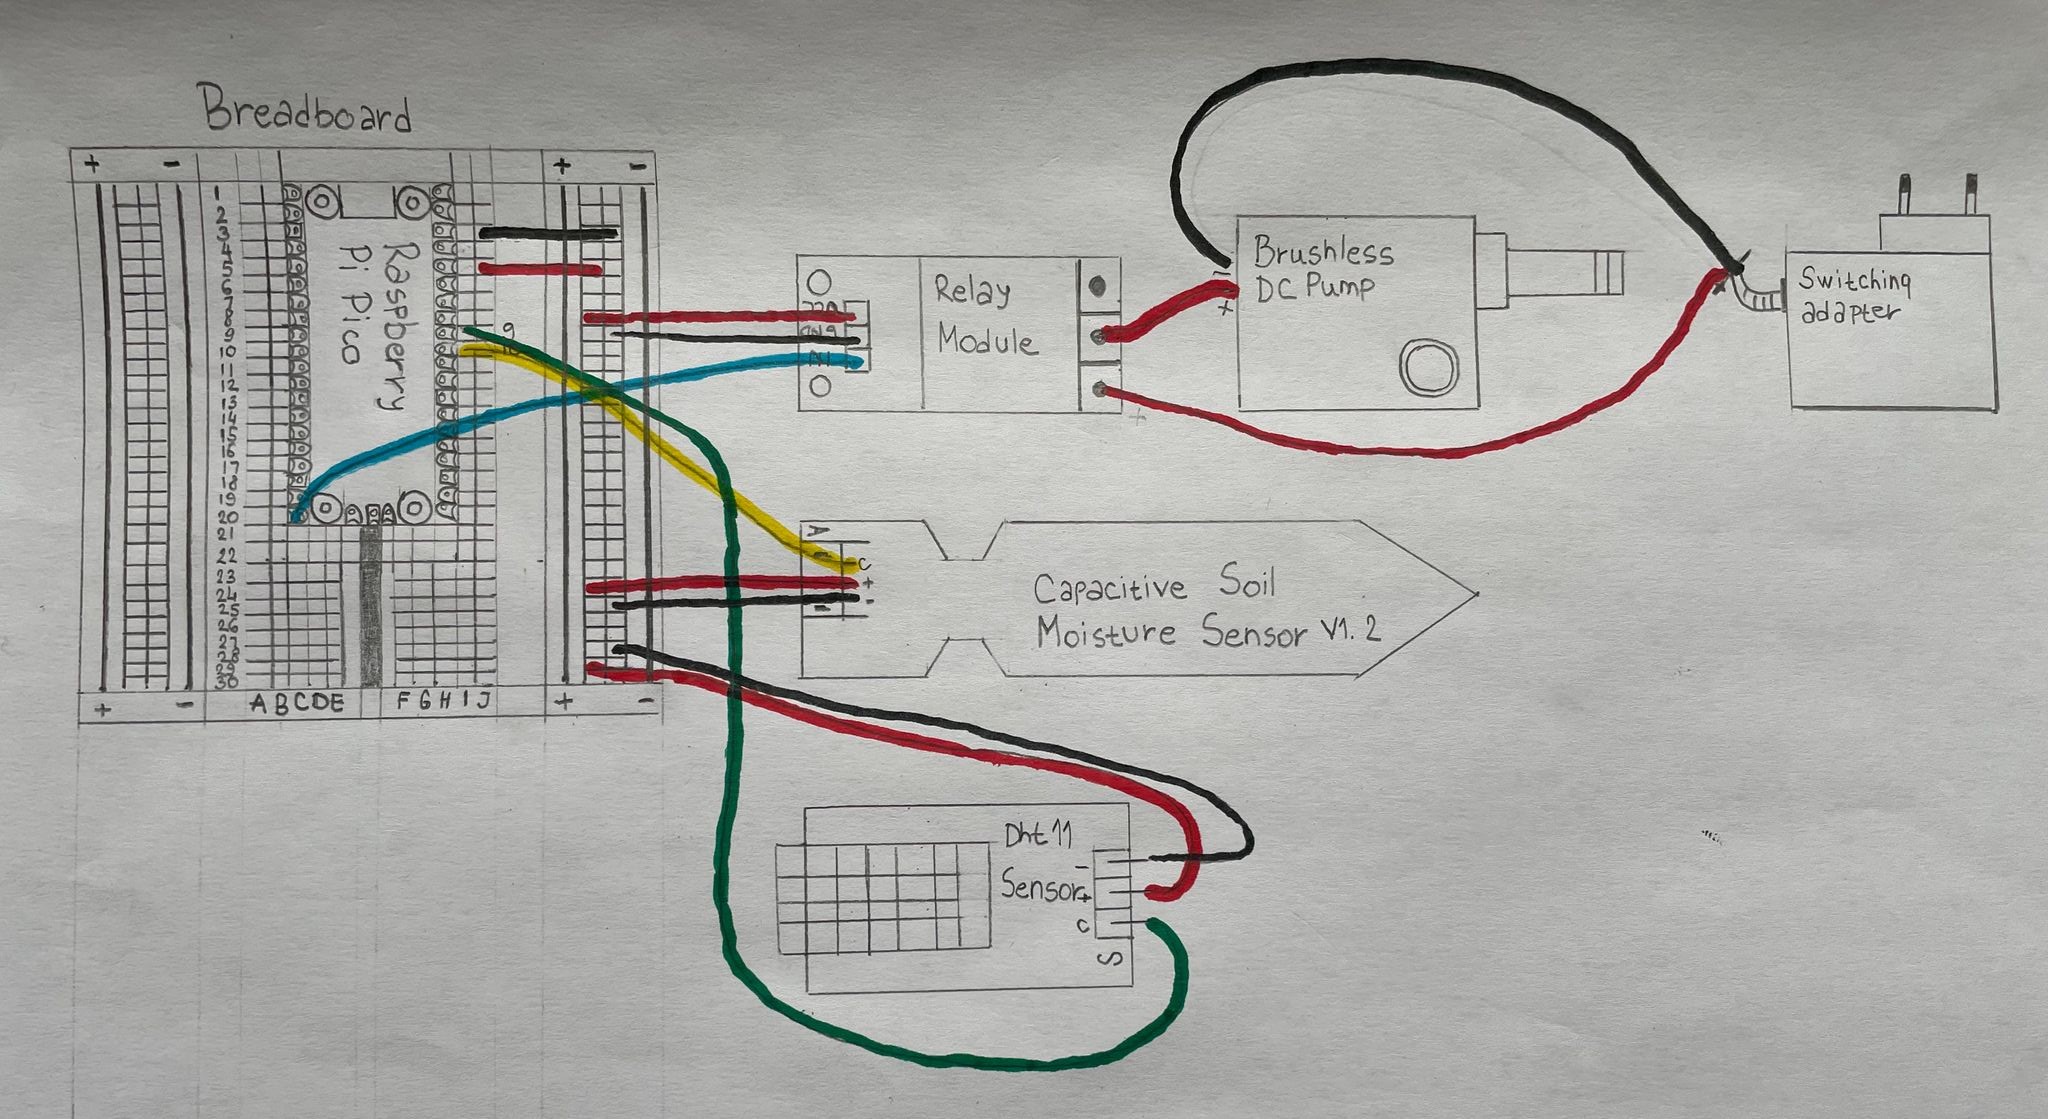 Breadboard
+ - + -
1
2
3
4
5
6
7
8
9
10
11
12
13
14
15
16
17
18
19
20
21
22
23
24
25
26
27
28
29
30
Raspberry
Pi Pico
9
10
+ - A B C D E F G H I J + -
VCC
GND
IN
Relay
Module
+
-
+
Brushless
DC Pump
Switching
adapter
A
C
+
-
Capacitive Soil
Moisture Sensor V1.2
Dht 11
Sensor
-
+
C
S